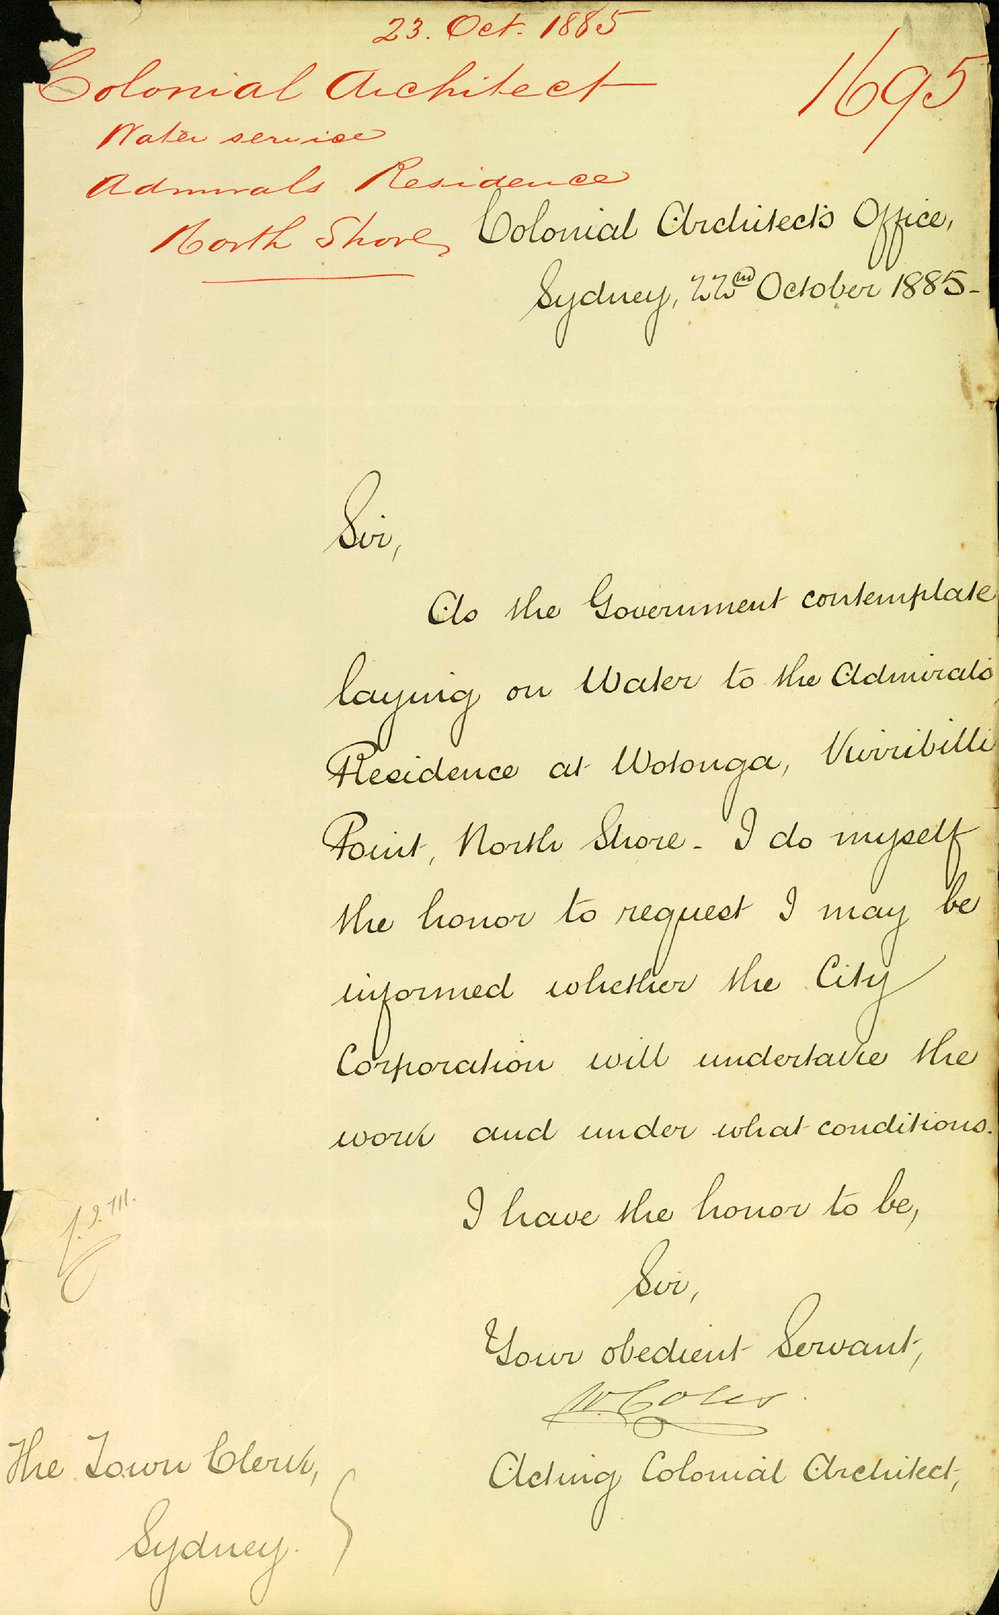 23. Oct. 1885
1695
Colonial Architect
Water service
Admirals Residence
North Shore
Colonial Architect's Office,
Sydney, 22nd October 1885-
Sir,
As the Government contemplate
laying on Water to the Admirals
Residence at Wotonga, Kirribilli
Point, North Shore - I do myself
the honor to request I may be
informed whether the City
Corporation will undertake the
work and under what conditions.
I have the honor to be,
Sir,
Your obedient Servant,
W. Coles
Acting Colonial Architect,
The Town Clerk,
Sydney.